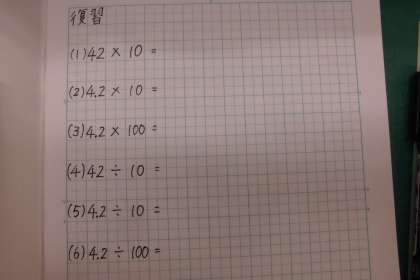 復習
(1) 42 × 10 =
(2) 4.2 × 10 =
(3) 4.2 × 100 =
(4) 42 ÷ 10 =
(5) 4.2 ÷ 10 =
(6) 4.2 ÷ 100 =